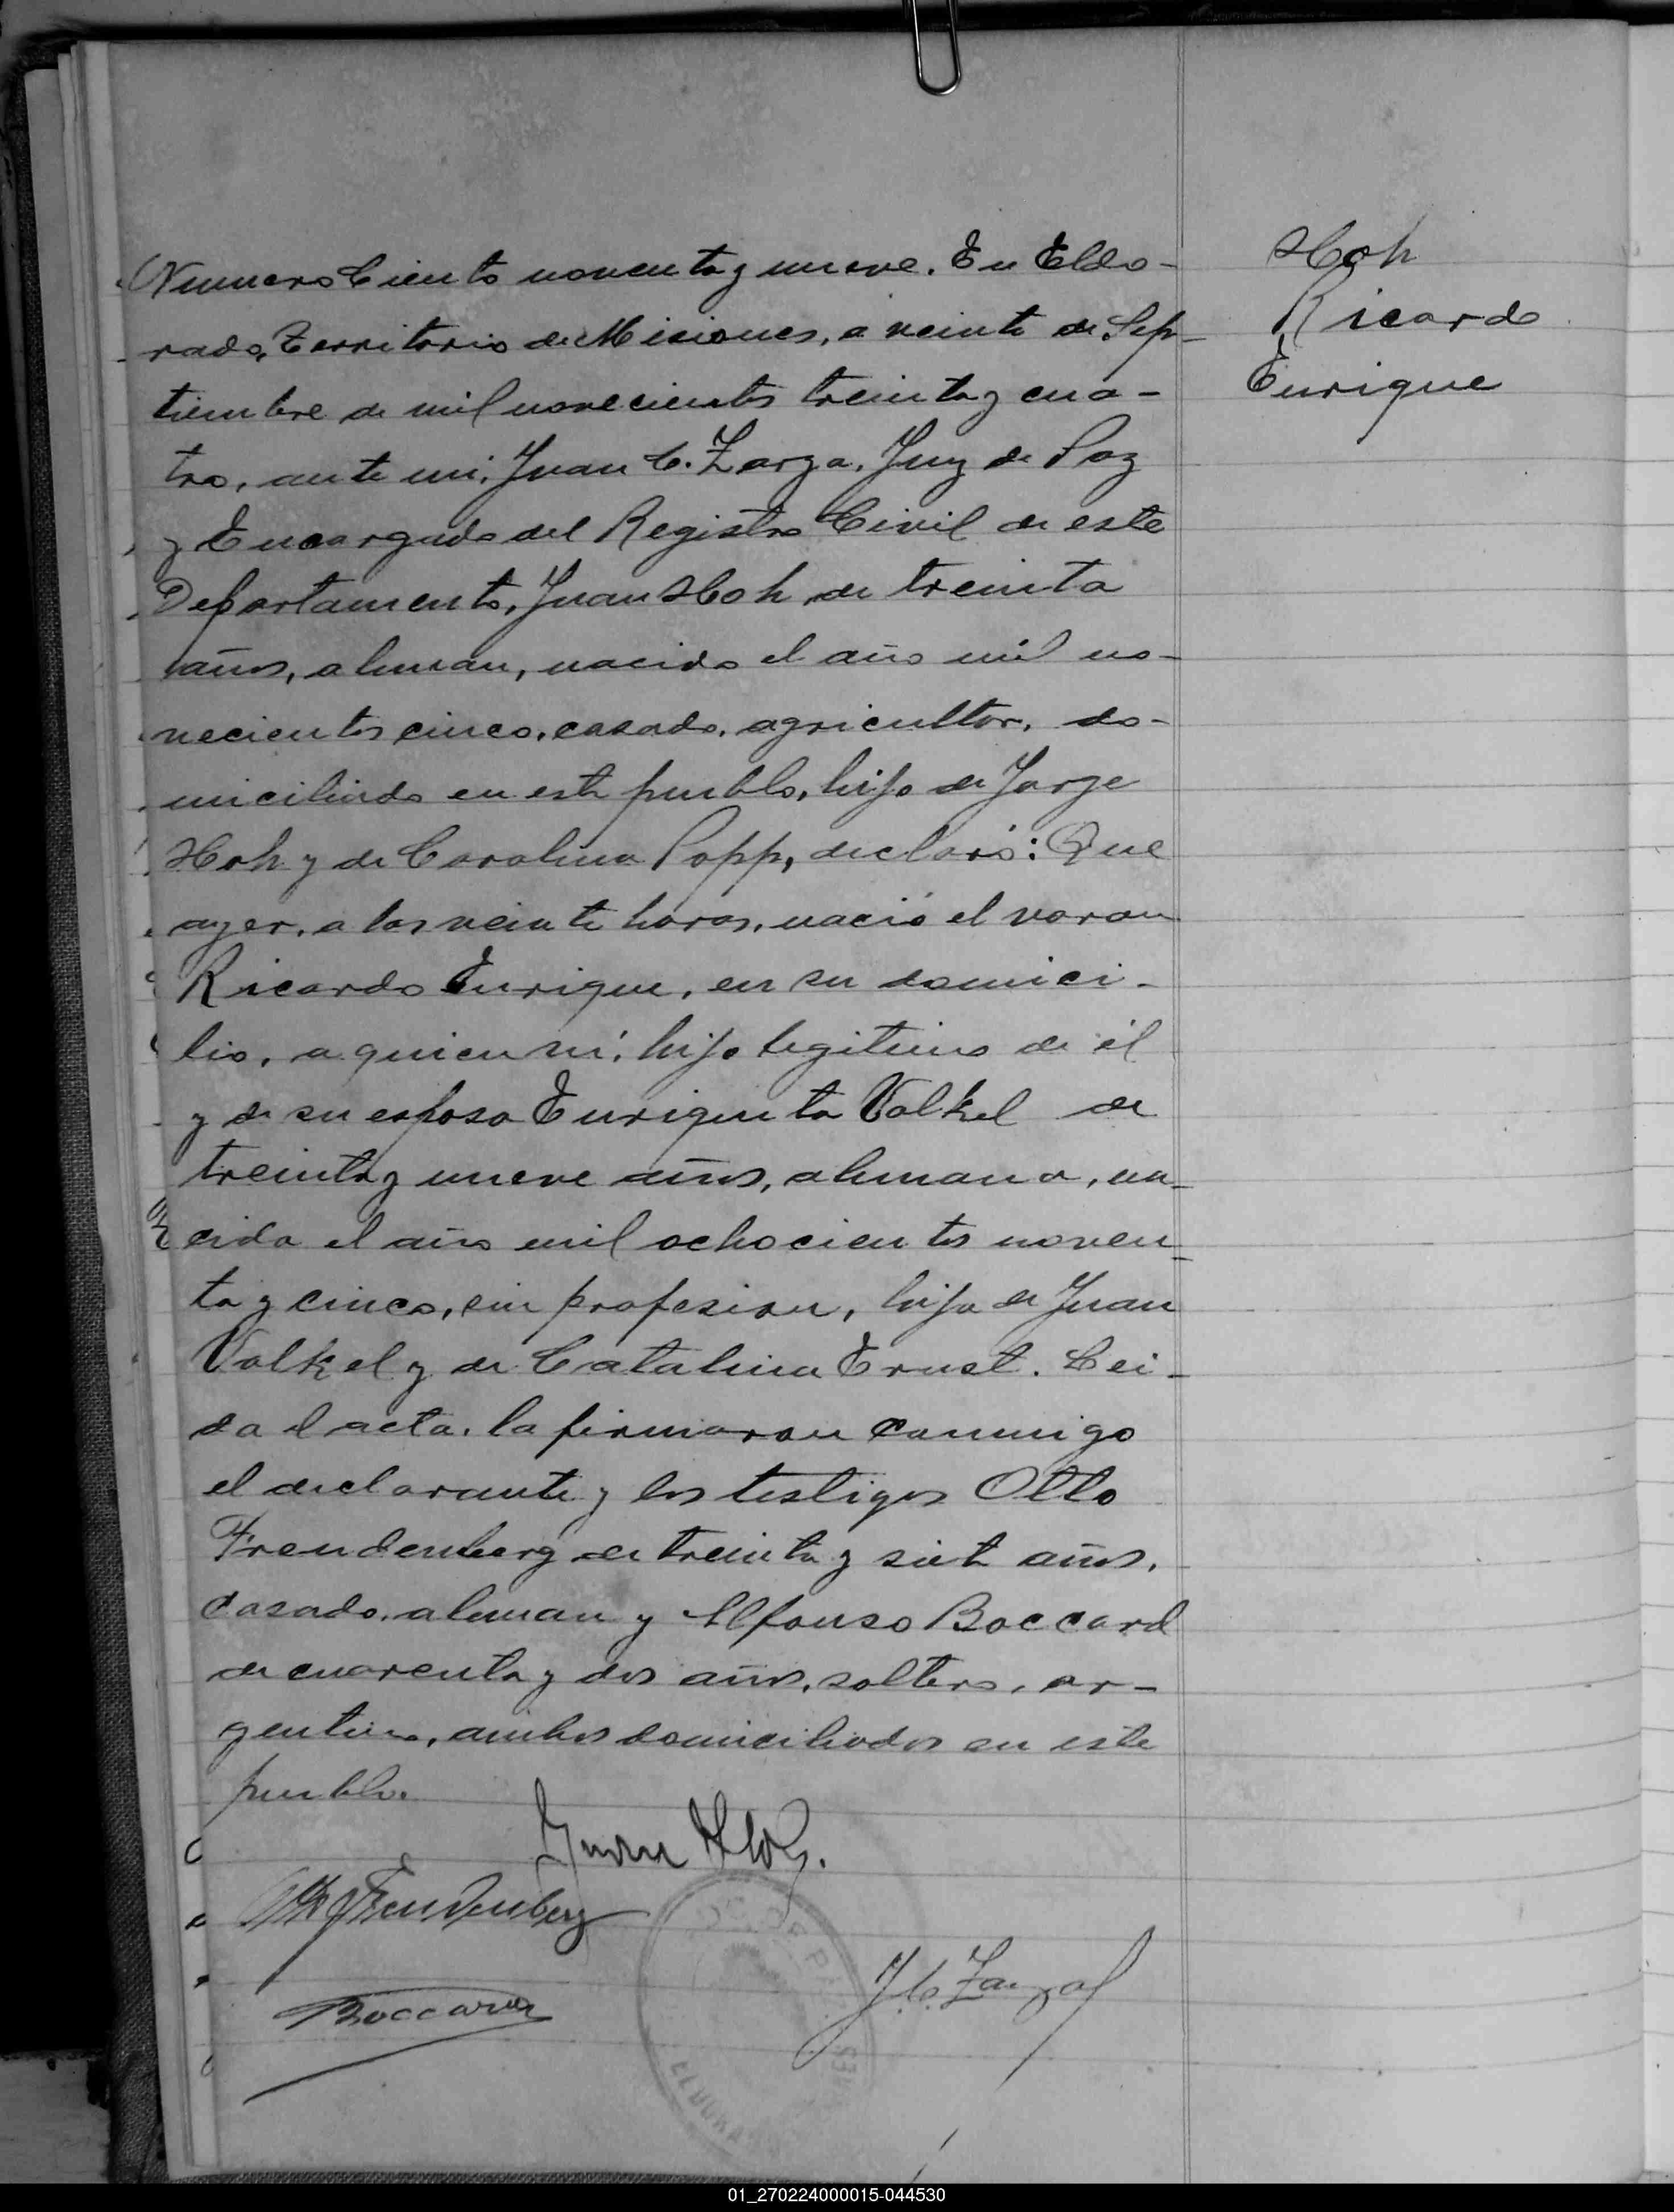 Numero Ciento noventa y nueve. En Eldo-
rado, Territorio de Misiones, a veinte de Sep-
tiembre de mil novecientos treinta y cua-
tro, ante mi, Juan C. Zarza, Juez de Paz
y Encargado del Registro Civil de este
Departamento, Juan Hoh de treinta
años, aleman, nacido el año mil no-
vecientos cinco, casado, agricultor, do-
miciliado en este pueblo, hijo de Jorge
Hoh y de Carolina Popp, declaró: Que
ayer, a las veinte horas, nació el varon
Ricardo Enrique, en su domici-
lio, a quien ví, hijo legitimo de él
y de su esposa Enriqueta Volkel de
treinta y nueve años, alemana, na-
cida el año mil ochocientos noven-
ta y cinco, sin profesion, hija de Juan
Volkel y de Catalina Ernst. Lei-
da el acta, la firmaron conmigo
el declarante y los testigos Otto
Freudenberg de treinta y siete años,
casado, aleman y Alfonso Boccard
de cuarenta y dos años, soltero, ar-
gentino, ambos domiciliados en este
pueblo.
Juan Hoh.
Otto Freudenberg
Boccard
J. C. Zarza
Hoh
Ricardo
Enrique
01_270224000015-044530